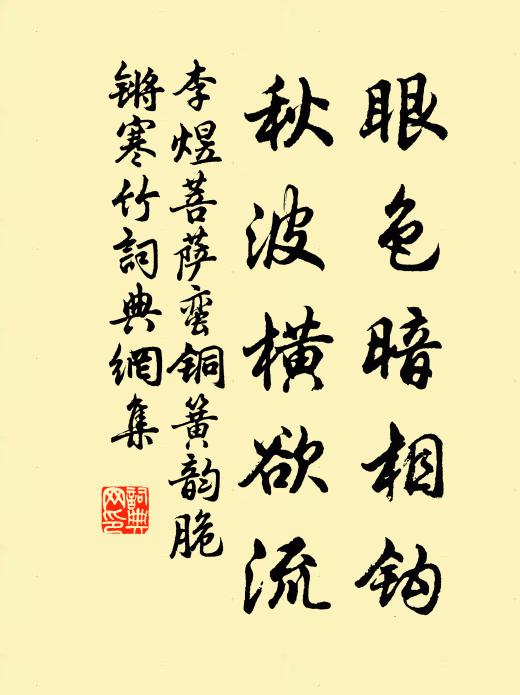 眼色暗相钩
秋波横欲流
李煜菩萨蛮铜簧韵脆
锵寒竹詞典網集
詞典
网印